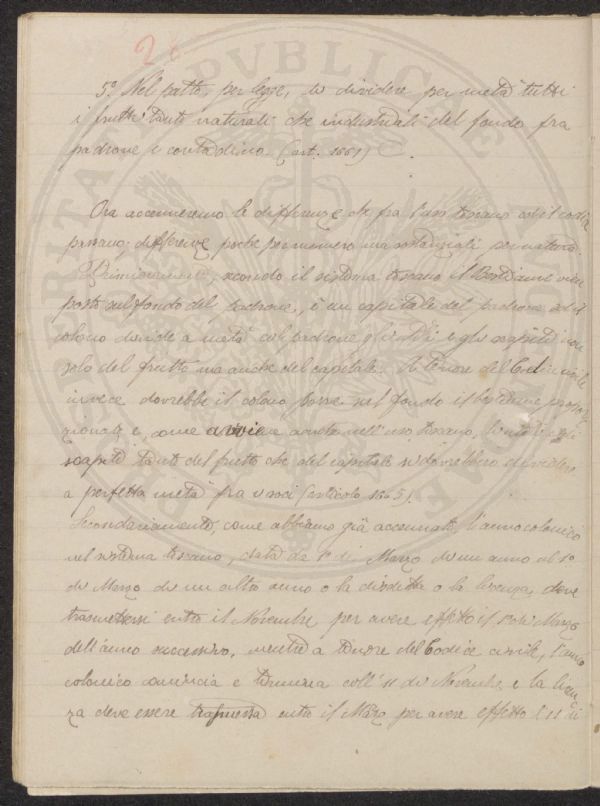 28
5º Nel patto, per legge, di dividere per metà tutti
i frutti tanto naturali che industriali del fondo fra
padrone e contadino (art. 1661)
Ora accenneremo le differenze che fra l'uso toscano ed il codice
passano, differenze poche per numero ma sostanziali per natura.
Primieramente, secondo il sistema toscano il Bestiame vien
posto sul fondo del padrone, è un capitale del padrone ed il
colono divide a metà col padrone gli utili e gli scapiti non
solo del frutto ma anche del capitale. A tenore del Codice civile
invece dovrebbe il colono porre nel fondo il bestiame propor
zionato e, come avviene anche nell'uso toscano, l'utile e gli
scapiti tanto del frutto che del capitale si dovrebbero dividere
a perfetta metà fra i soci (articolo 1665).
Secondariamente, come abbiamo già accennato, l'anno colonico
nel sistema toscano, data da 1º di Marzo di un anno al 1º
di Marzo di un altro anno e la disdetta o la licenza, deve
trasmettersi entro il Novembre per avere effetto il 1º di Marzo
dell'anno successivo, mentre a tenore del Codice civile, l'anno
colonico comincia e termina coll'11 di Novembre e la licen
za deve essere trasmessa entro il Marzo per avere effetto l'11 di